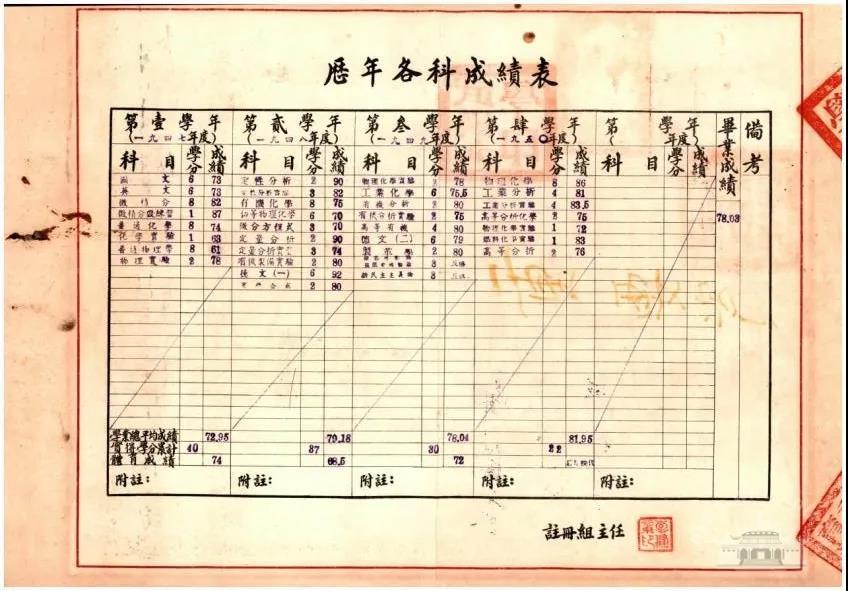 歷年各科成績表
第壹學年 第貳學年 第叁學年 第肆學年 第( 學年 畢業成績 備考
(一九四七年度) (一九四八年度) (一九四九年度) (一九五〇年度) 學年度)
科目 學分 成績 科目 學分 成績 科目 學分 成績 科目 學分 成績 科目 學分 成績
國文 6 73 定性分析 2 90 物理化學實驗 78 物理化學 8 86
英文 6 73 定性分析實驗 3 82 工業化學 6 75.5 工業分析 4 81
微積分 8 82 有機化學 8 75 有機分析 2 80 工業分析實驗 4 83.5
微積分演練習 1 87 初等物理化學 6 70 有機分析實驗 2 75 高等分析化學 2 75
普通化學 8 74 微分方程式 3 70 高等有機 4 80 物理化學實驗 1 72
化學實驗 1 63 定量分析 2 90 德文(二) 6 79 燃料化學實驗 1 83
普通物理學 8 61 定量分析實驗 3 74 製革學 2 80 高等分析 2 76
物理實驗 2 78 有機製備實驗 2 80 3
德文(一) 6 92 新民主主義論 3
2 80
78.03
學業總平均成績 72.95 79.18 78.04 81.95
實得學分累計 40 37 30 22
體育成績 74 68.5 72
附註: 附註: 附註: 附註: 附註:
註冊組主任